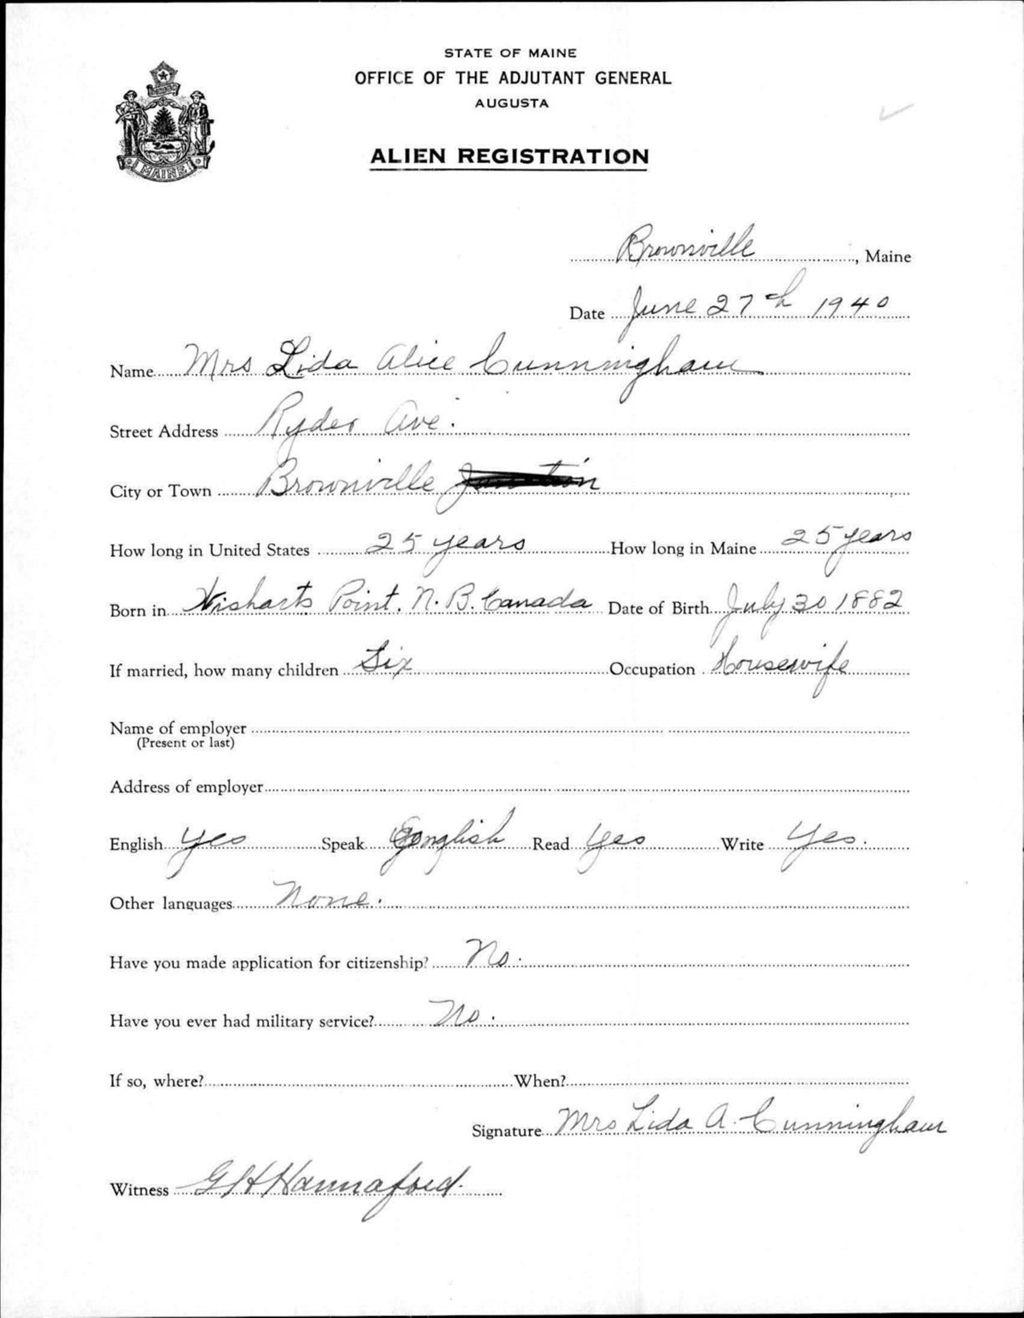 STATE OF MAINE
OFFICE OF THE ADJUTANT GENERAL
AUGUSTA
ALIEN REGISTRATION
MAINE
Brownville, Maine
Date June 27th 1940
Name Mrs Lida Alice Cunningham
Street Address Ryder Ave.
City or Town Brownville Junction
How long in United States 25 years How long in Maine 25 years
Born in Wisharts Point. N.B. Canada Date of Birth July 30 1882
If married, how many children Six Occupation Housewife
Name of employer
(Present or last)
Address of employer
English Yes Speak English Read Yes Write Yes.
Other languages None.
Have you made application for citizenship? No.
Have you ever had military service? No.
If so, where? When?
Signature Mrs Lida A. Cunningham
Witness G H Hannaford.